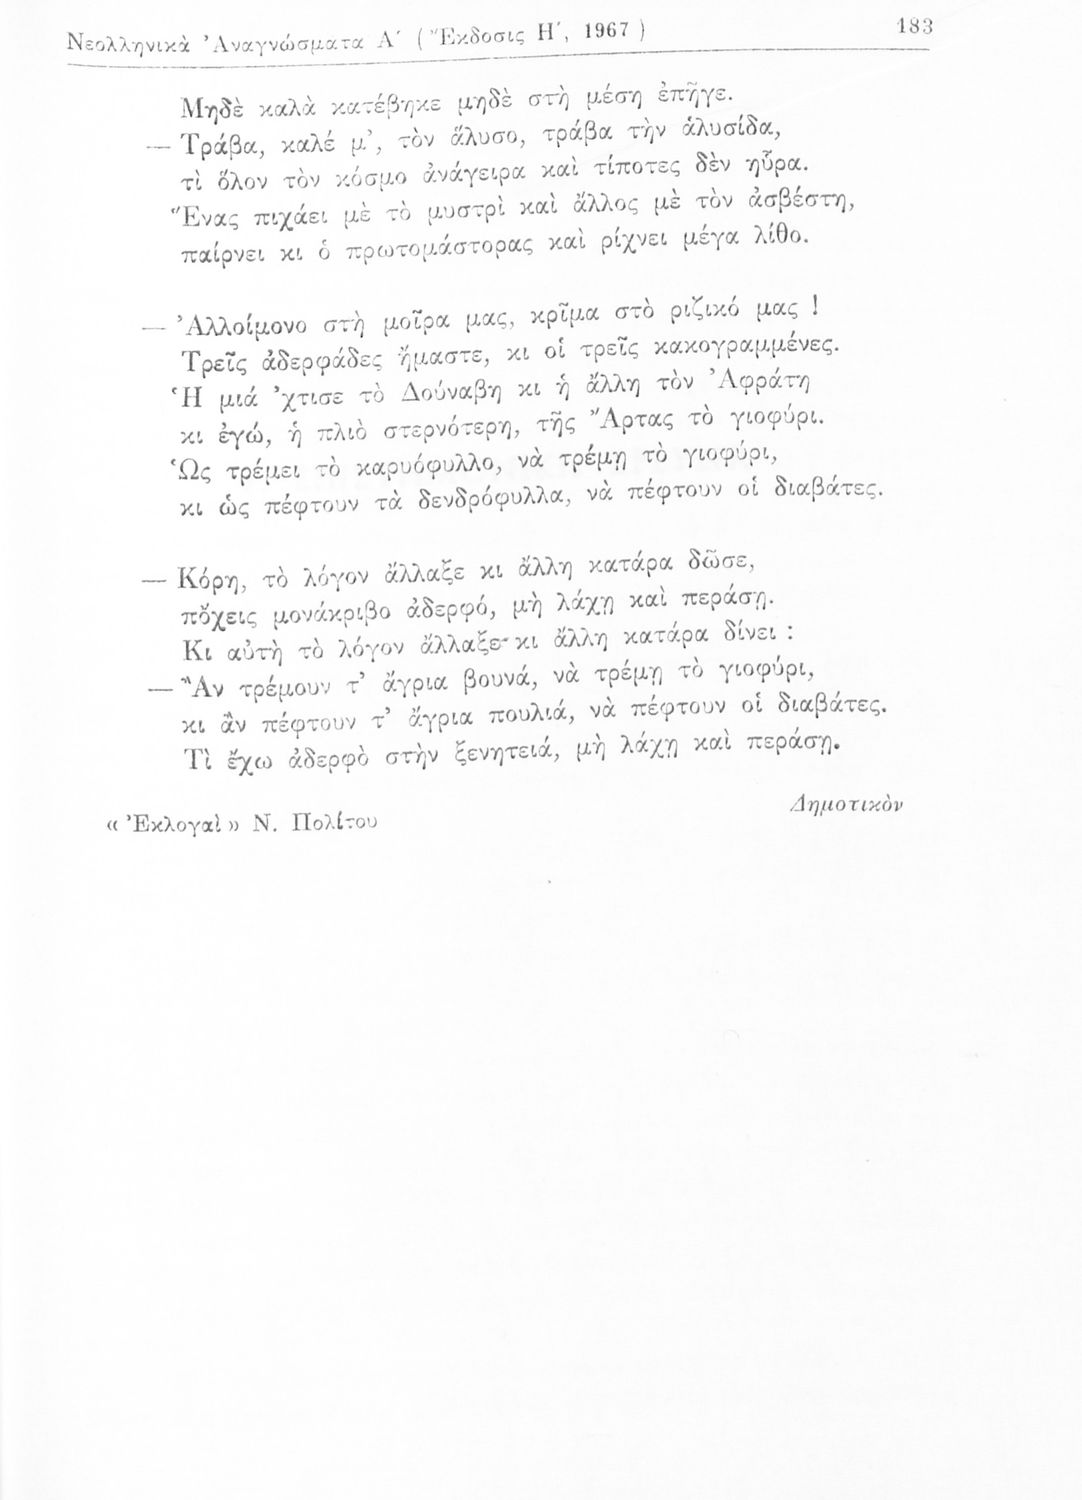 Νεολληνικὰ Ἀναγνώσματα Α΄ ( Ἔκδοσις Η΄, 1967 ) 183
Μηδὲ καλὰ κατέβηκε μηδὲ στὴ μέση ἐπῆγε.
— Τράβα, καλέ μ᾿, τὸν ἄλυσο, τράβα τὴν ἁλυσίδα,
τὶ ὅλον τὸν κόσμο ἀνάγειρα καὶ τίποτες δὲν ηὗρα.
Ἕνας πιχάει μὲ τὸ μυστρὶ καὶ ἄλλος μὲ τὸν ἀσβέστη,
παίρνει κι ὁ πρωτομάστορας καὶ ρίχνει μέγα λίθο.
— Ἀλλοίμονο στὴ μοῖρα μας, κρῖμα στὸ ριζικό μας !
Τρεῖς ἀδερφάδες ἤμαστε, κι οἱ τρεῖς κακογραμμένες.
Ἡ μιά ᾿χτισε τὸ Δούναβη κι ἡ ἄλλη τὸν Ἀφράτη
κι ἐγώ, ἡ πλιὸ στερνότερη, τῆς Ἄρτας τὸ γιοφύρι.
Ὡς τρέμει τὸ καρυόφυλλο, νὰ τρέμῃ τὸ γιοφύρι,
κι ὡς πέφτουν τὰ δενδρόφυλλα, νὰ πέφτουν οἱ διαβάτες.
— Κόρη, τὸ λόγον ἄλλαξε κι ἄλλη κατάρα δῶσε,
πὄχεις μονάκριβο ἀδερφό, μὴ λάχῃ καὶ περάσῃ.
Κι αὐτὴ τὸ λόγον ἄλλαξε κι ἄλλη κατάρα δίνει :
— Ἂν τρέμουν τ᾿ ἄγρια βουνά, νὰ τρέμῃ τὸ γιοφύρι,
κι ἂν πέφτουν τ᾿ ἄγρια πουλιά, νὰ πέφτουν οἱ διαβάτες.
Τὶ ἔχω ἀδερφὸ στὴν ξενητειά, μὴ λάχῃ καὶ περάσῃ.
Δημοτικὸν
« Ἐκλογαὶ » Ν. Πολίτου